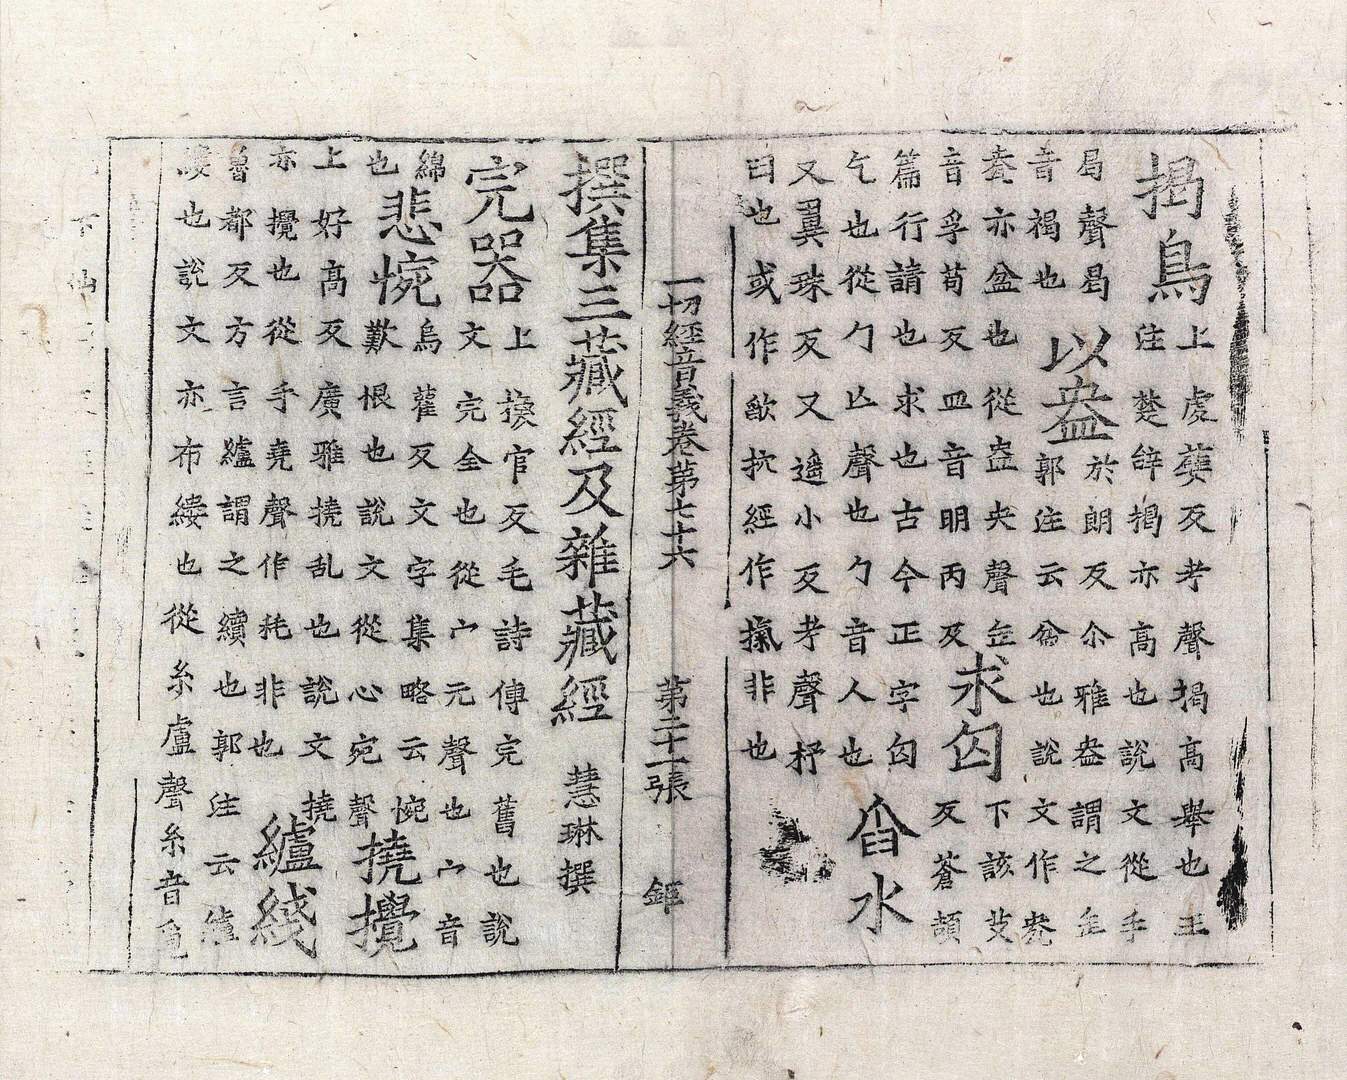 揭鳥
上虔蘖反考聲揭高舉也王
注楚辭揭亦高也說文從手
局聲曷
音褐也
以盎
於朗反尒雅盎謂之缶
郭注云盆也說文作㼜
㼜亦盆也從盎央聲缶
音孚苟反皿音明丙反
求匃
下該艾
反蒼頡
篇行請也求也古今正字匃
乞也從勹亾聲也勹音人也
舀水
又翼珠反又遥小反考聲抒
臼也或作歃抗經作非也
一切經音義卷苐七十六 苐二十一張
撰集三藏經及雜藏經 慧琳撰
完器
上換官反毛詩傳完舊也說
文完全也從宀元聲也宀音
綿
也
悲惋
烏藿反文字集略云惋
歎恨也說文從心宛聲
撓攪
上好高反廣雅撓乱也說文撓
亦攪也從手堯聲作㧌非也
纑綫
魯都反方言纑謂之續也郭注云纑
縷也說文亦布縷也從糸盧聲糸音覓